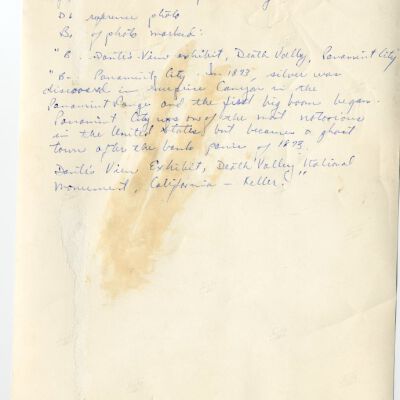 Ds reference photo
Bs of photo marked:
"B. Dante's View exhibit, Death Valley, Panamint City
"B- Panamint City. In 1873, silver was
discovered in Surprise Canyon in the
Panamint Range and the first big boom began.
Panamint City was one of the most notorious
in the United States but became a ghost
town after the bank panic of 1893.
Dante's View Exhibit, Death Valley National
Monument, California - Keller."